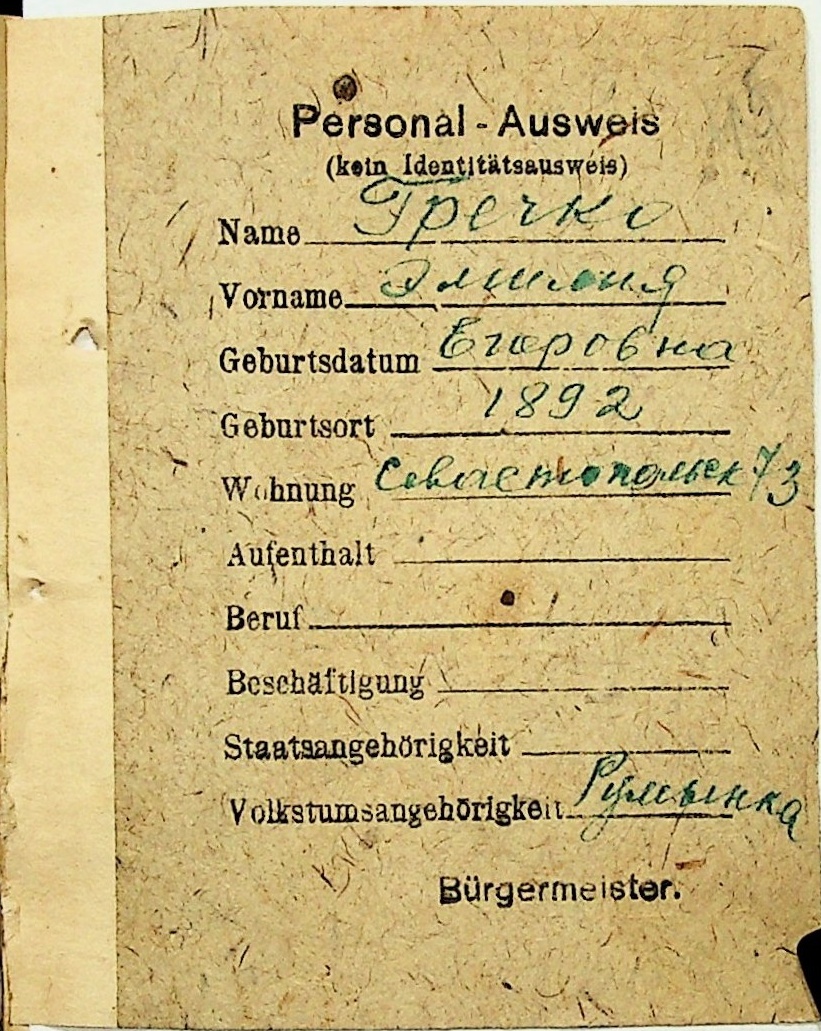 Personal - Ausweis
(kein Identitätsausweis)
Name Гречко
Vorname Эмилия
Geburtsdatum Егоровна
Geburtsort 1892
Wohnung Севастопольск 73
Aufenthalt
Beruf
Beschäftigung
Staatsangehörigkeit
Volkstumsangehörigkeit Румынка
Bürgermeister.